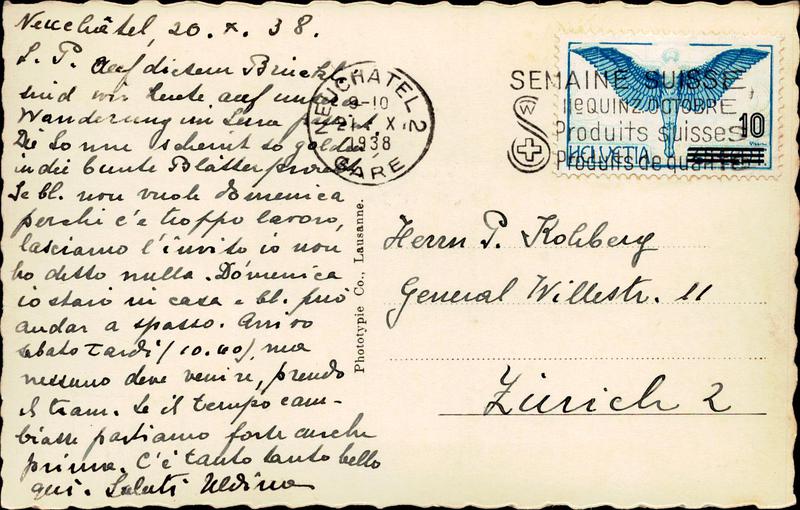 Neuchâtel, 20. X. 38.
L. P. Auf diesem Brückli
sind wir heute auf unsrer
Wanderung im Jura
Die Sonne scheint so golden
in die bunte Blätterpracht
Se bl. non vuole domenica
perchi c'è troppo lavoro,
lasciamo l'invito io non
ho detto nulla. Domenica
io starò in casa e bl. può
andar a spasso. Arrivo
sabato tardi (10.40), ma
nessuno deve venire, prendo
il tram. Se il tempo cam-
biasse partiamo forse anche
prima. C'è tanto tanto bello
qui. Saluti Uldina
Phototypie Co., Lausanne.
NEUCHATEL 2
9-10
21. X
1938
GARE
SEMAINE SUISSE,
IIe QUINZ. OCTOBRE
Produits suisses
Produits de qualité
W
10
HELVETIA
Herrn P. Kohberg
General Willestr. 11
Zürich 2